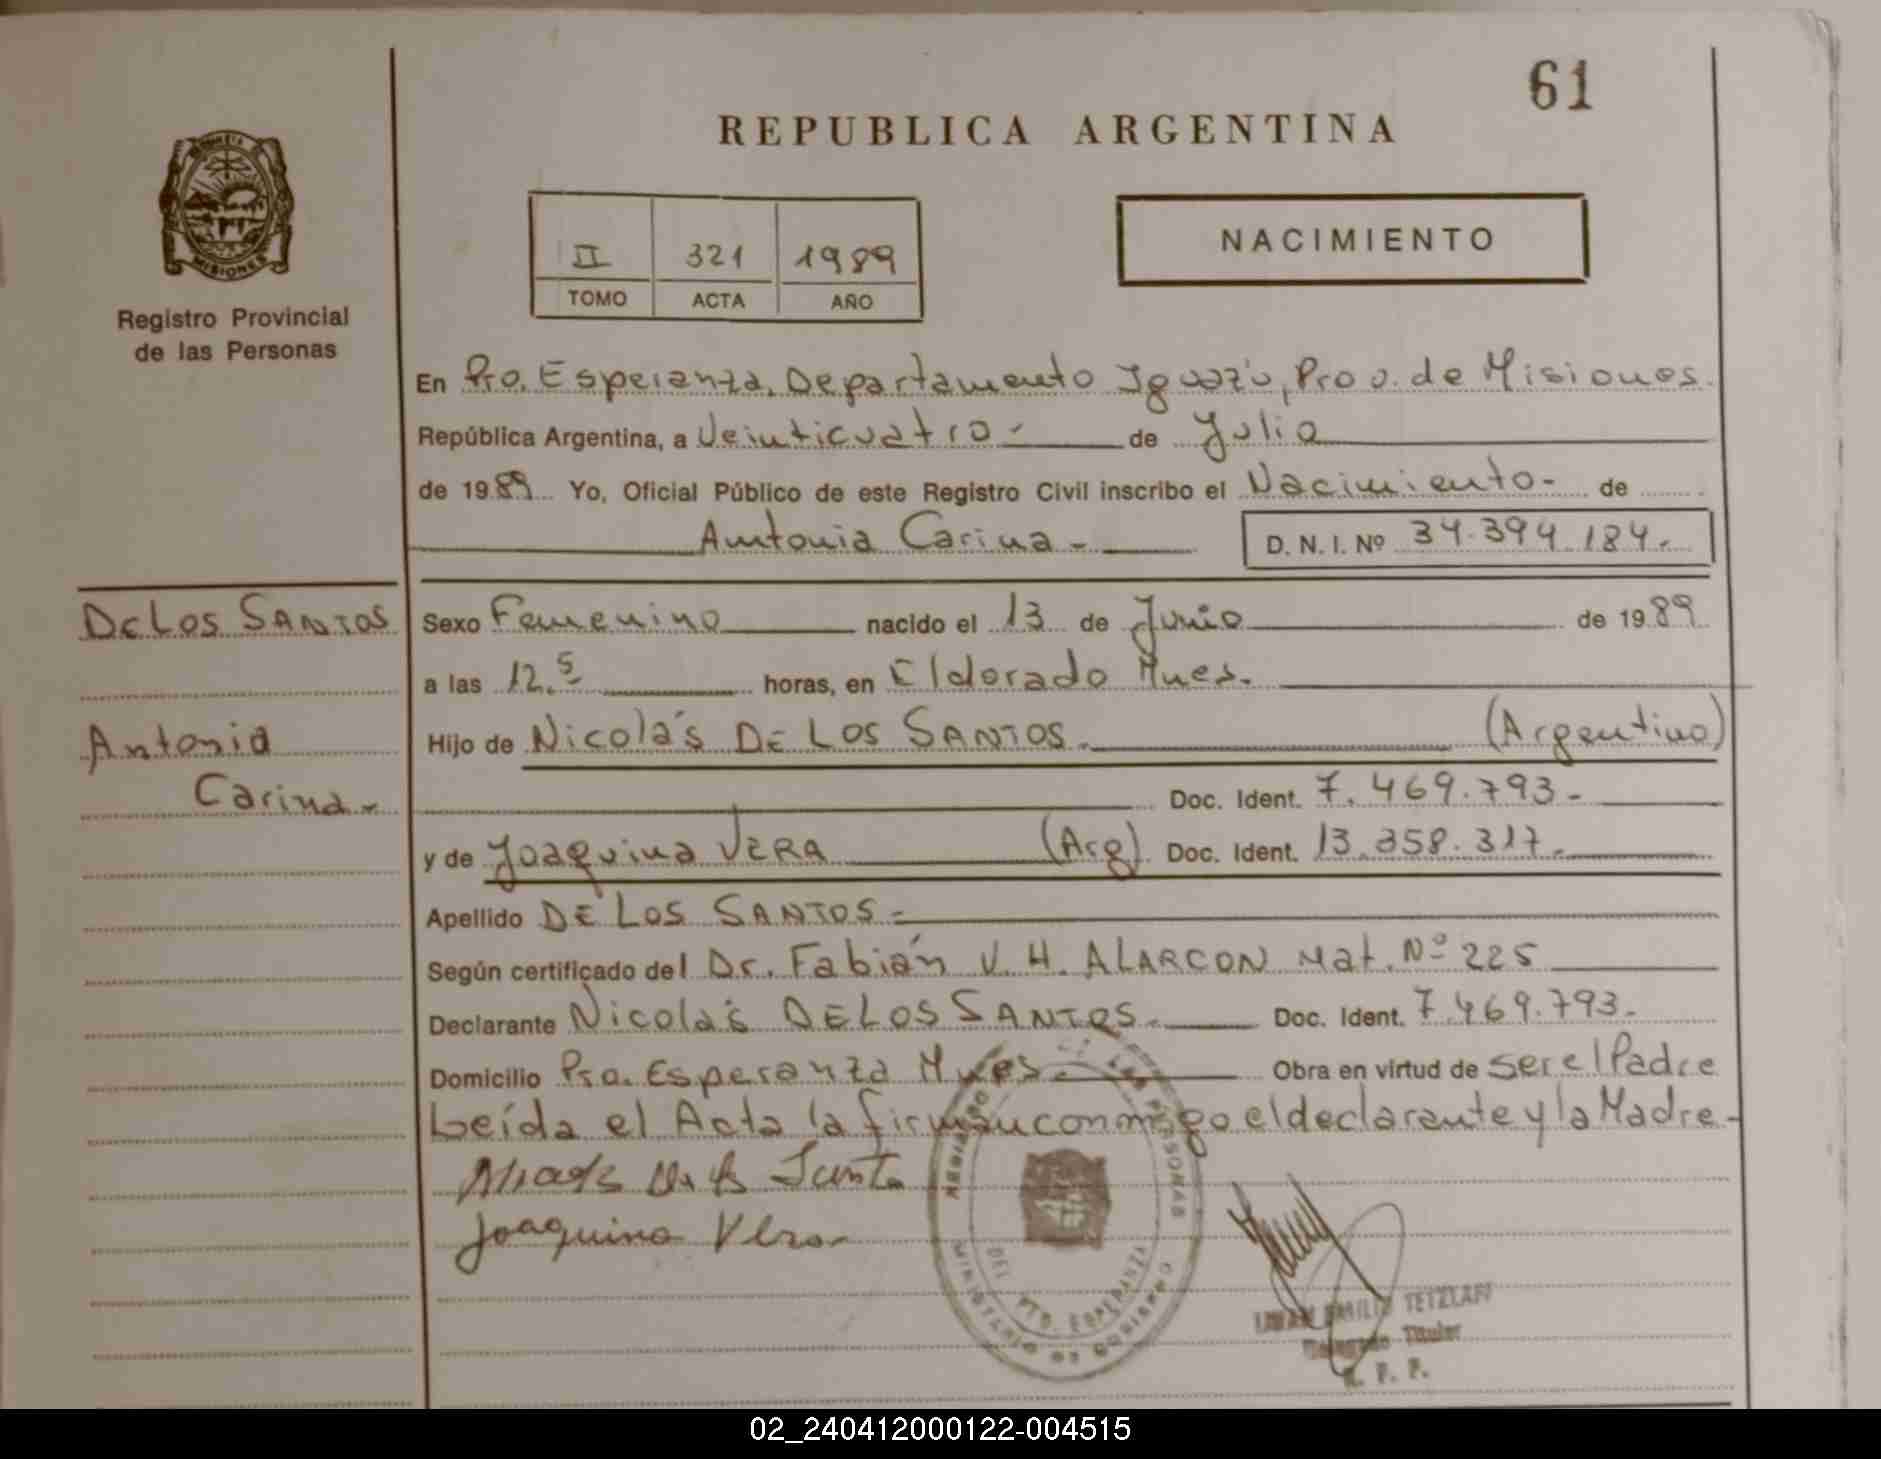 61
REPUBLICA ARGENTINA
II 321 1989
TOMO ACTA AÑO
NACIMIENTO
MISIONES
Registro Provincial
de las Personas
En Pto. Esperanza, Departamento Iguazú, Prov. de Misiones.
República Argentina, a Veinticuatro - de Julio
de 1989 Yo, Oficial Público de este Registro Civil inscribo el Nacimiento - de
Antonia Carina - D. N. I. Nº 34.394.184.-
DE LOS SANTOS
Antonia
Carina -
Sexo Femenino nacido el 13 de Junio de 1989
a las 12.5 horas, en Eldorado Mnes.
Hijo de Nicolás DE LOS SANTOS.- (Argentino)
Doc. Ident. 7.469.793 -
y de Joaquina VERA (Arg) Doc. Ident. 13.358.317.-
Apellido DE LOS SANTOS -
Según certificado del Dr. Fabián V. H. ALARCON Mat. Nº 225
Declarante Nicolás DE LOS SANTOS.- Doc. Ident. 7.469.793.-
Domicilio Pto. Esperanza Mnes.- Obra en virtud de ser el Padre
Leída el Acta la firman conmigo el declarante y la Madre.-
Joaquina Vera
REGISTRO LAS PERSONAS
MINISTERIO DE GOBIERNO
DEL PTO. ESPERANZA
EMILIO TETZLAFF
Delegado Titular
R. P. P.
02_240412000122-004515